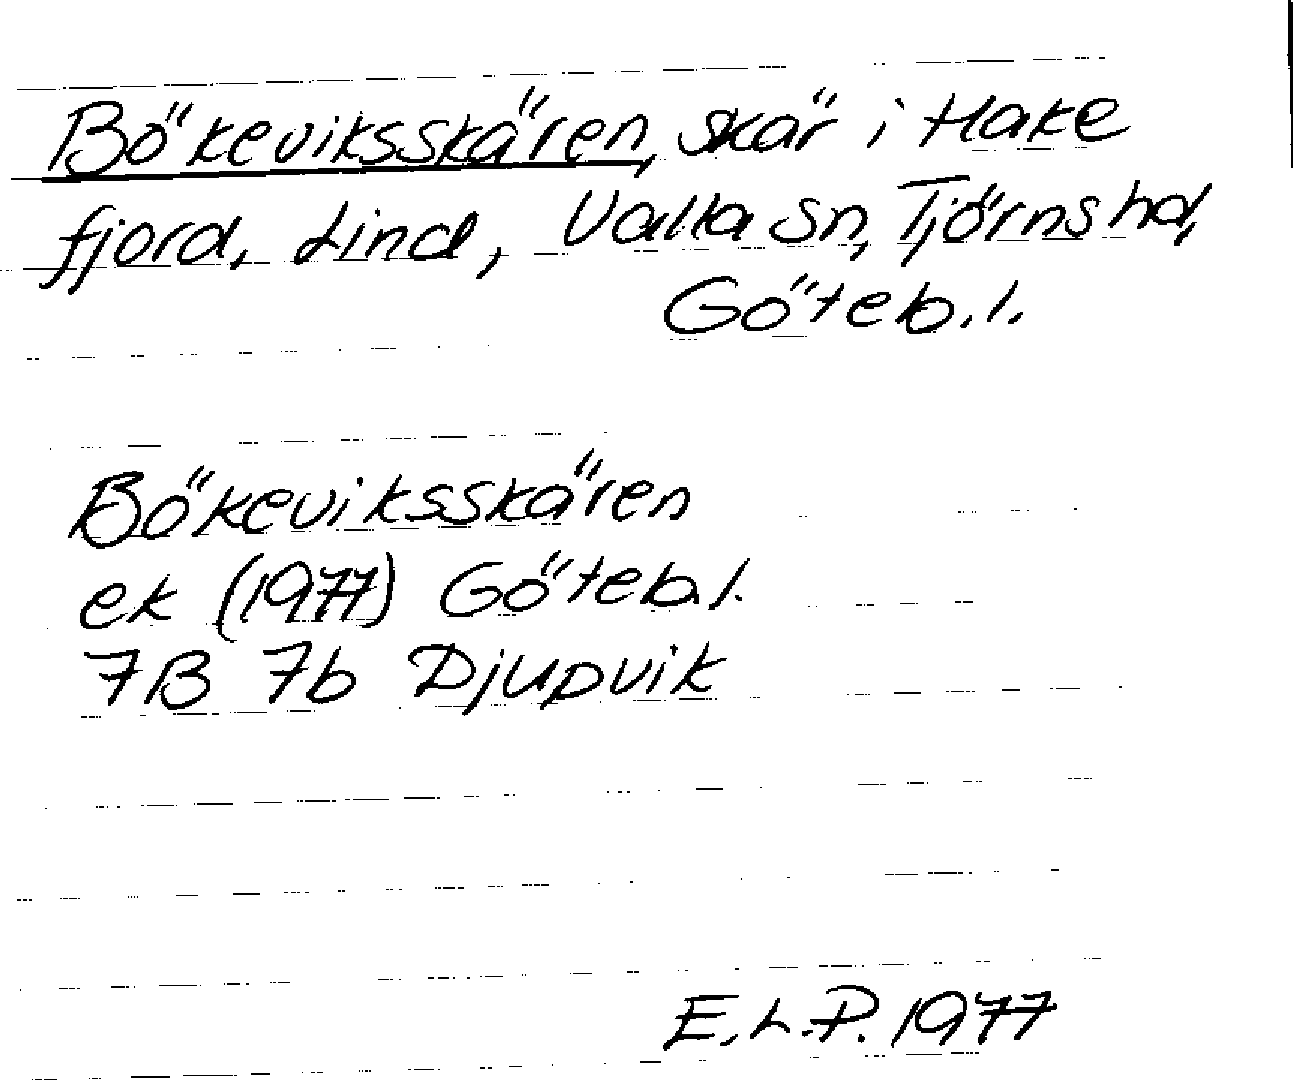 Bökeviksskären, skär i Hake
fjord, Lind, Valla sn, Tjörns hd,
Göteb. l.
Bökeviksskären
ek (1977) Göteb. l.
7B 7b Djupvik
E.L.P. 1977